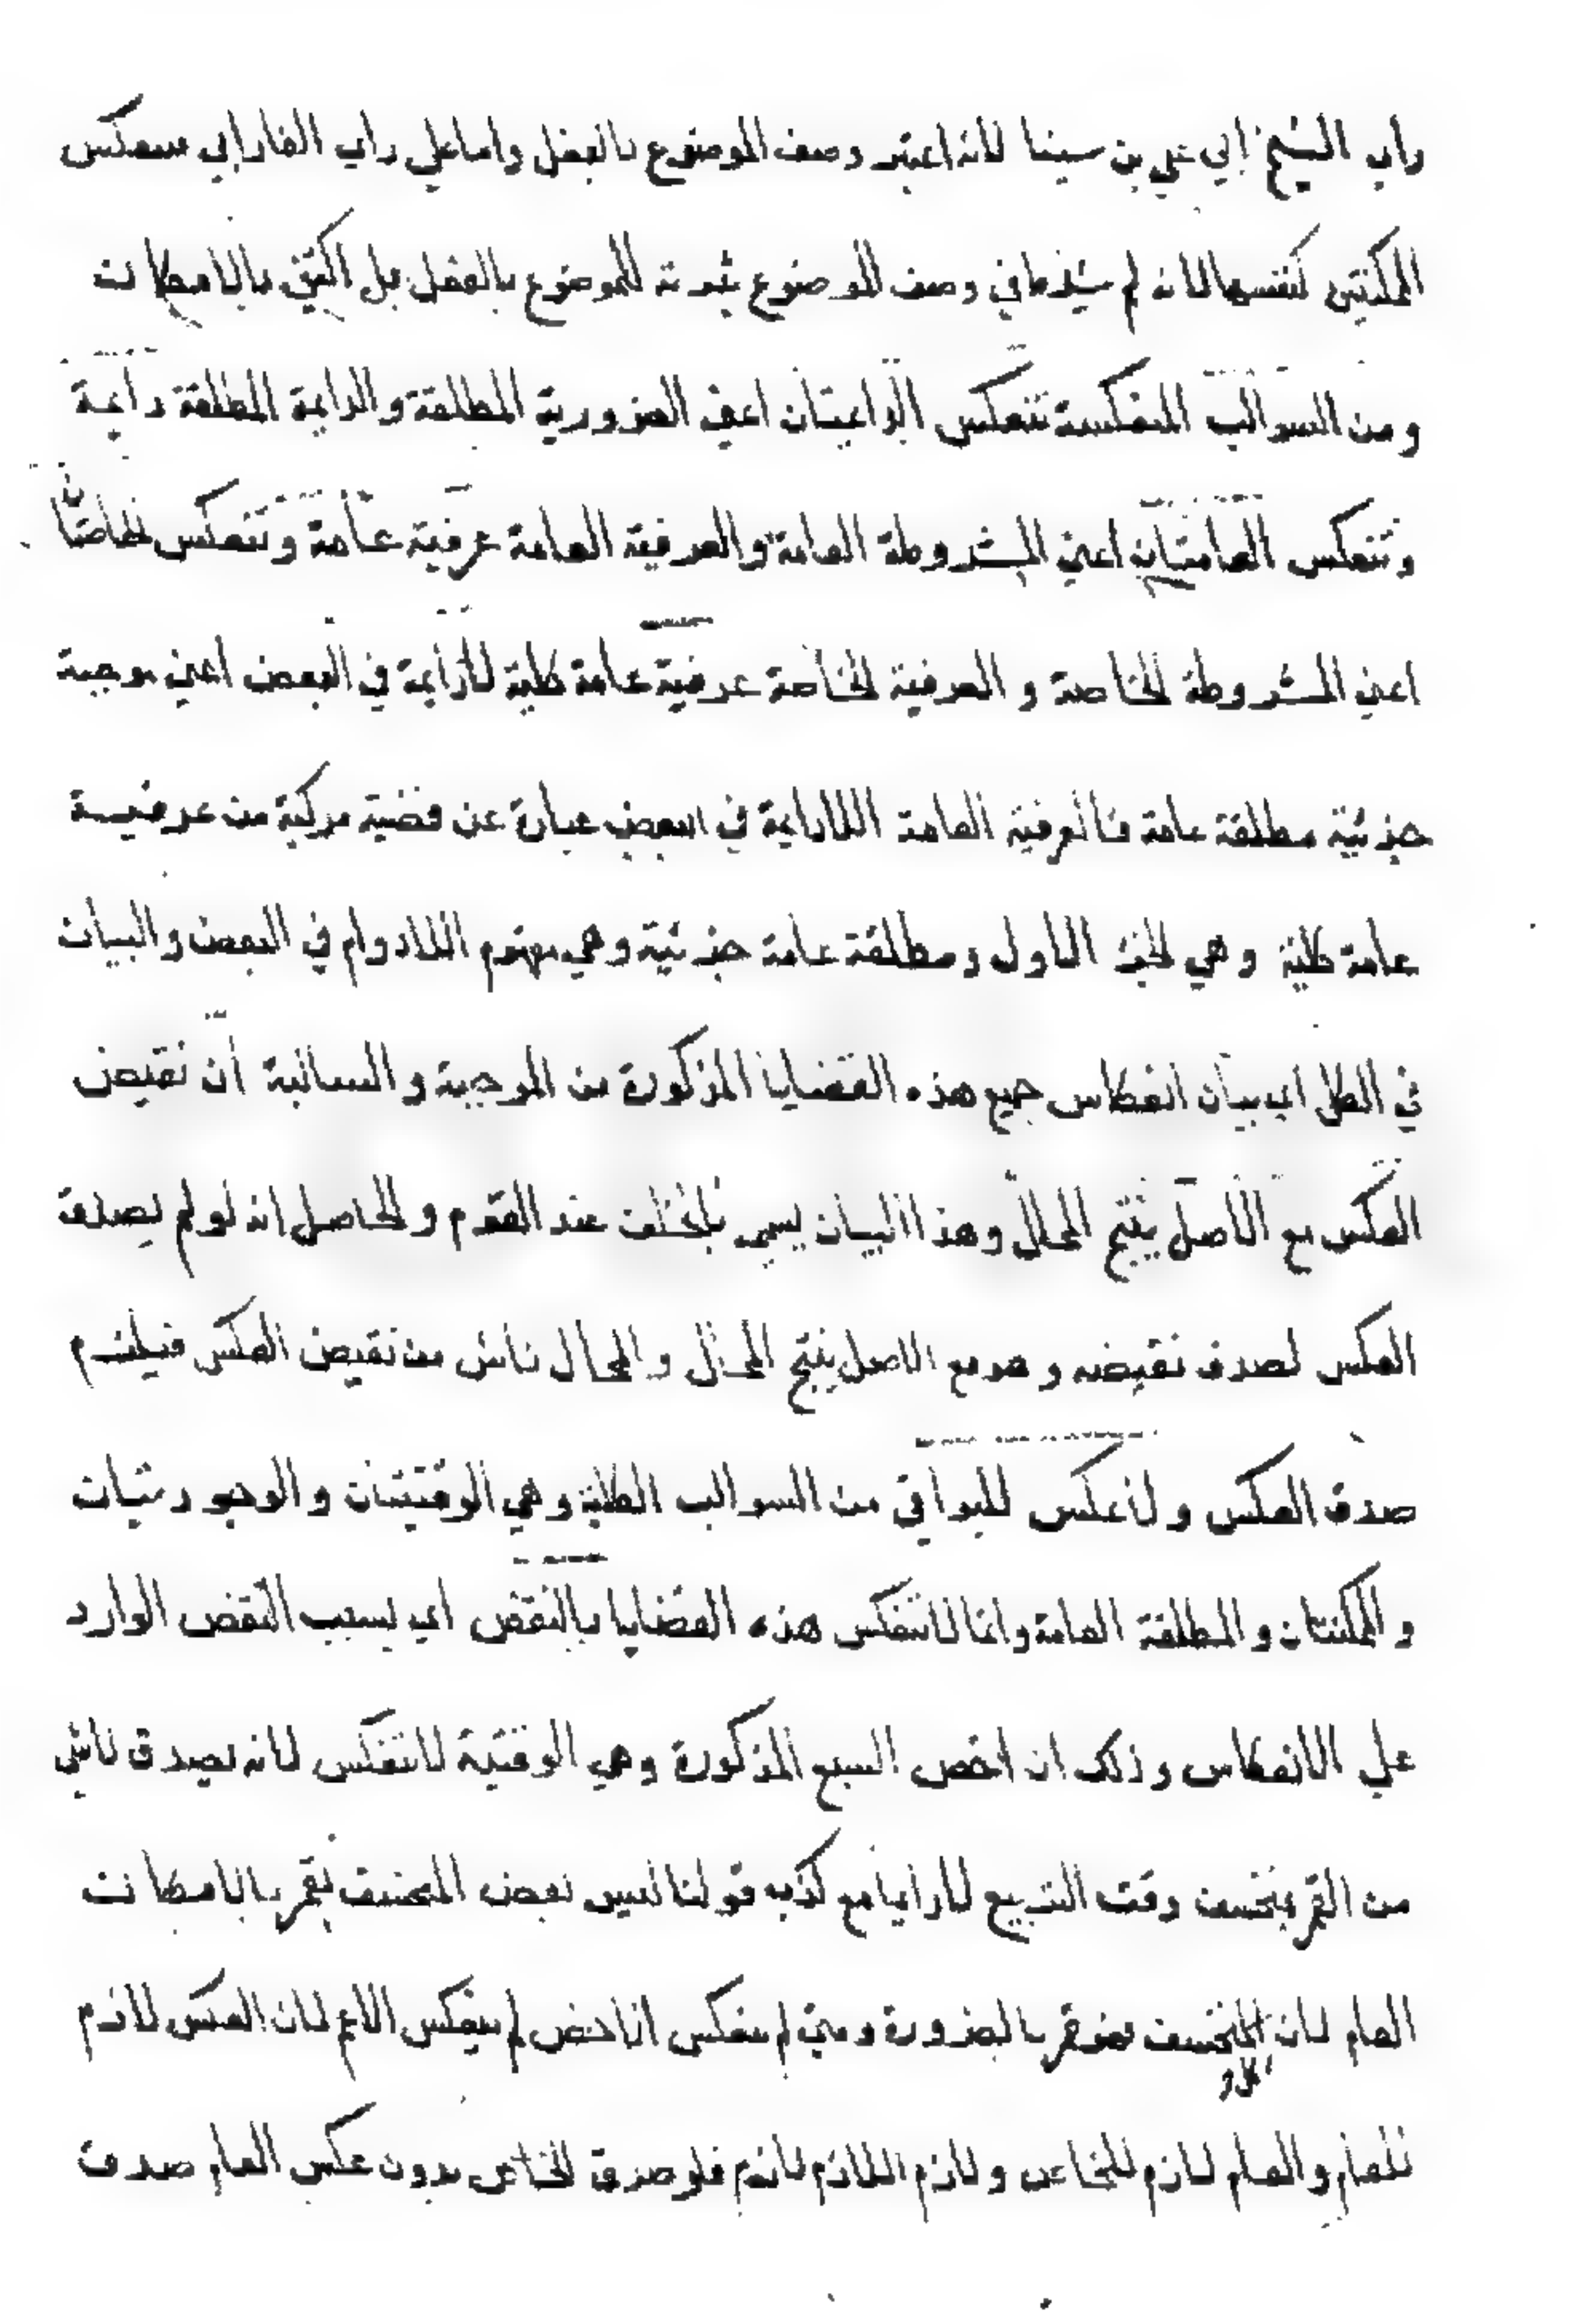 راي الشيخ ابي علي بن سينا لانه اعتبر وصف الموضوع بالفعل واما علي راي الفارابي سعكس
الممكنتين كنفسها لانه لم ياخذ في وصف الموضوع ثبوته للموضوع بالفعل بل اكتفي بالامكان
ومن السوالب المنعكسة تنعكس الدايمتان اعني الضرورية المطلقة والدايمة المطلقة دايمة
وتنعكس العامتان اعني المشروطة العامة والعرفية العامة عرفية عامة وتنعكس الخاصتان
اعني المشروطة الخاصة و العرفية الخاصة عرفية عامة كلية لادايمة في البعض اعني موجبة
جزئية مطلقة عامة فالعرفية العامة اللادايمة في البعض عبارة عن قضية مركبة من عرفيـة
عامة كلية وهي الجزء الاول ومطلقة عامة جزئية وهي مفهوم اللادوام في البعض والبيان
في الكل اي بيان انعكاس جميع هذه القضايا المذكورة من الموجبة والسالبة أن نقيض
العكس مع الاصل ينتج المحال وهذا البيان يسمي بالخلف عند القوم والحاصل انه لو لم يصدق
العكس لصدق نقيضه وهو مع الاصل ينتج المحال والمحال ناش من نقيض العكس فيلزم
صدق العكس ولاعكس للبواقي من السوالب الكلية وهي الوقتيتان والوجوديتان
والممكنتان والمطلقة العامة وانما لاتنعكس هذه القضايا بالنقض اي بسبب النقض الوارد
علي الانعكاس وذلك ان اخص السبع المذكورة وهي الوقتية لاتنعكس لانه يصدق لاشي
من القمر بمنخسف وقت التربيع لادايما مع كذب قولنا ليس بعض المنخسف بقمر بالامكان
العام لان المنخسف فهو قمر بالضرورة ومتي لم ينعكس الاخص لم ينعكس الاعم لان العكس لازم
للعام والعام لازم للخاص ولازم اللازم لازم فلو صدق الخاص بدون عكس العام صدق